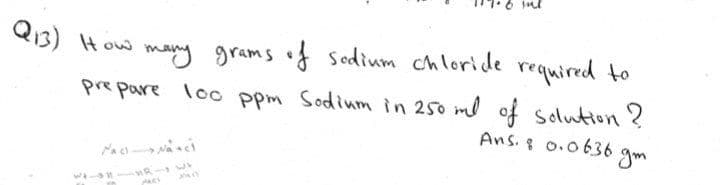 Q13) How many grams of sodium chloride required to
prepare 100 ppm Sodium in 250 ml of solution ?
Ans. : 0.0636 gm